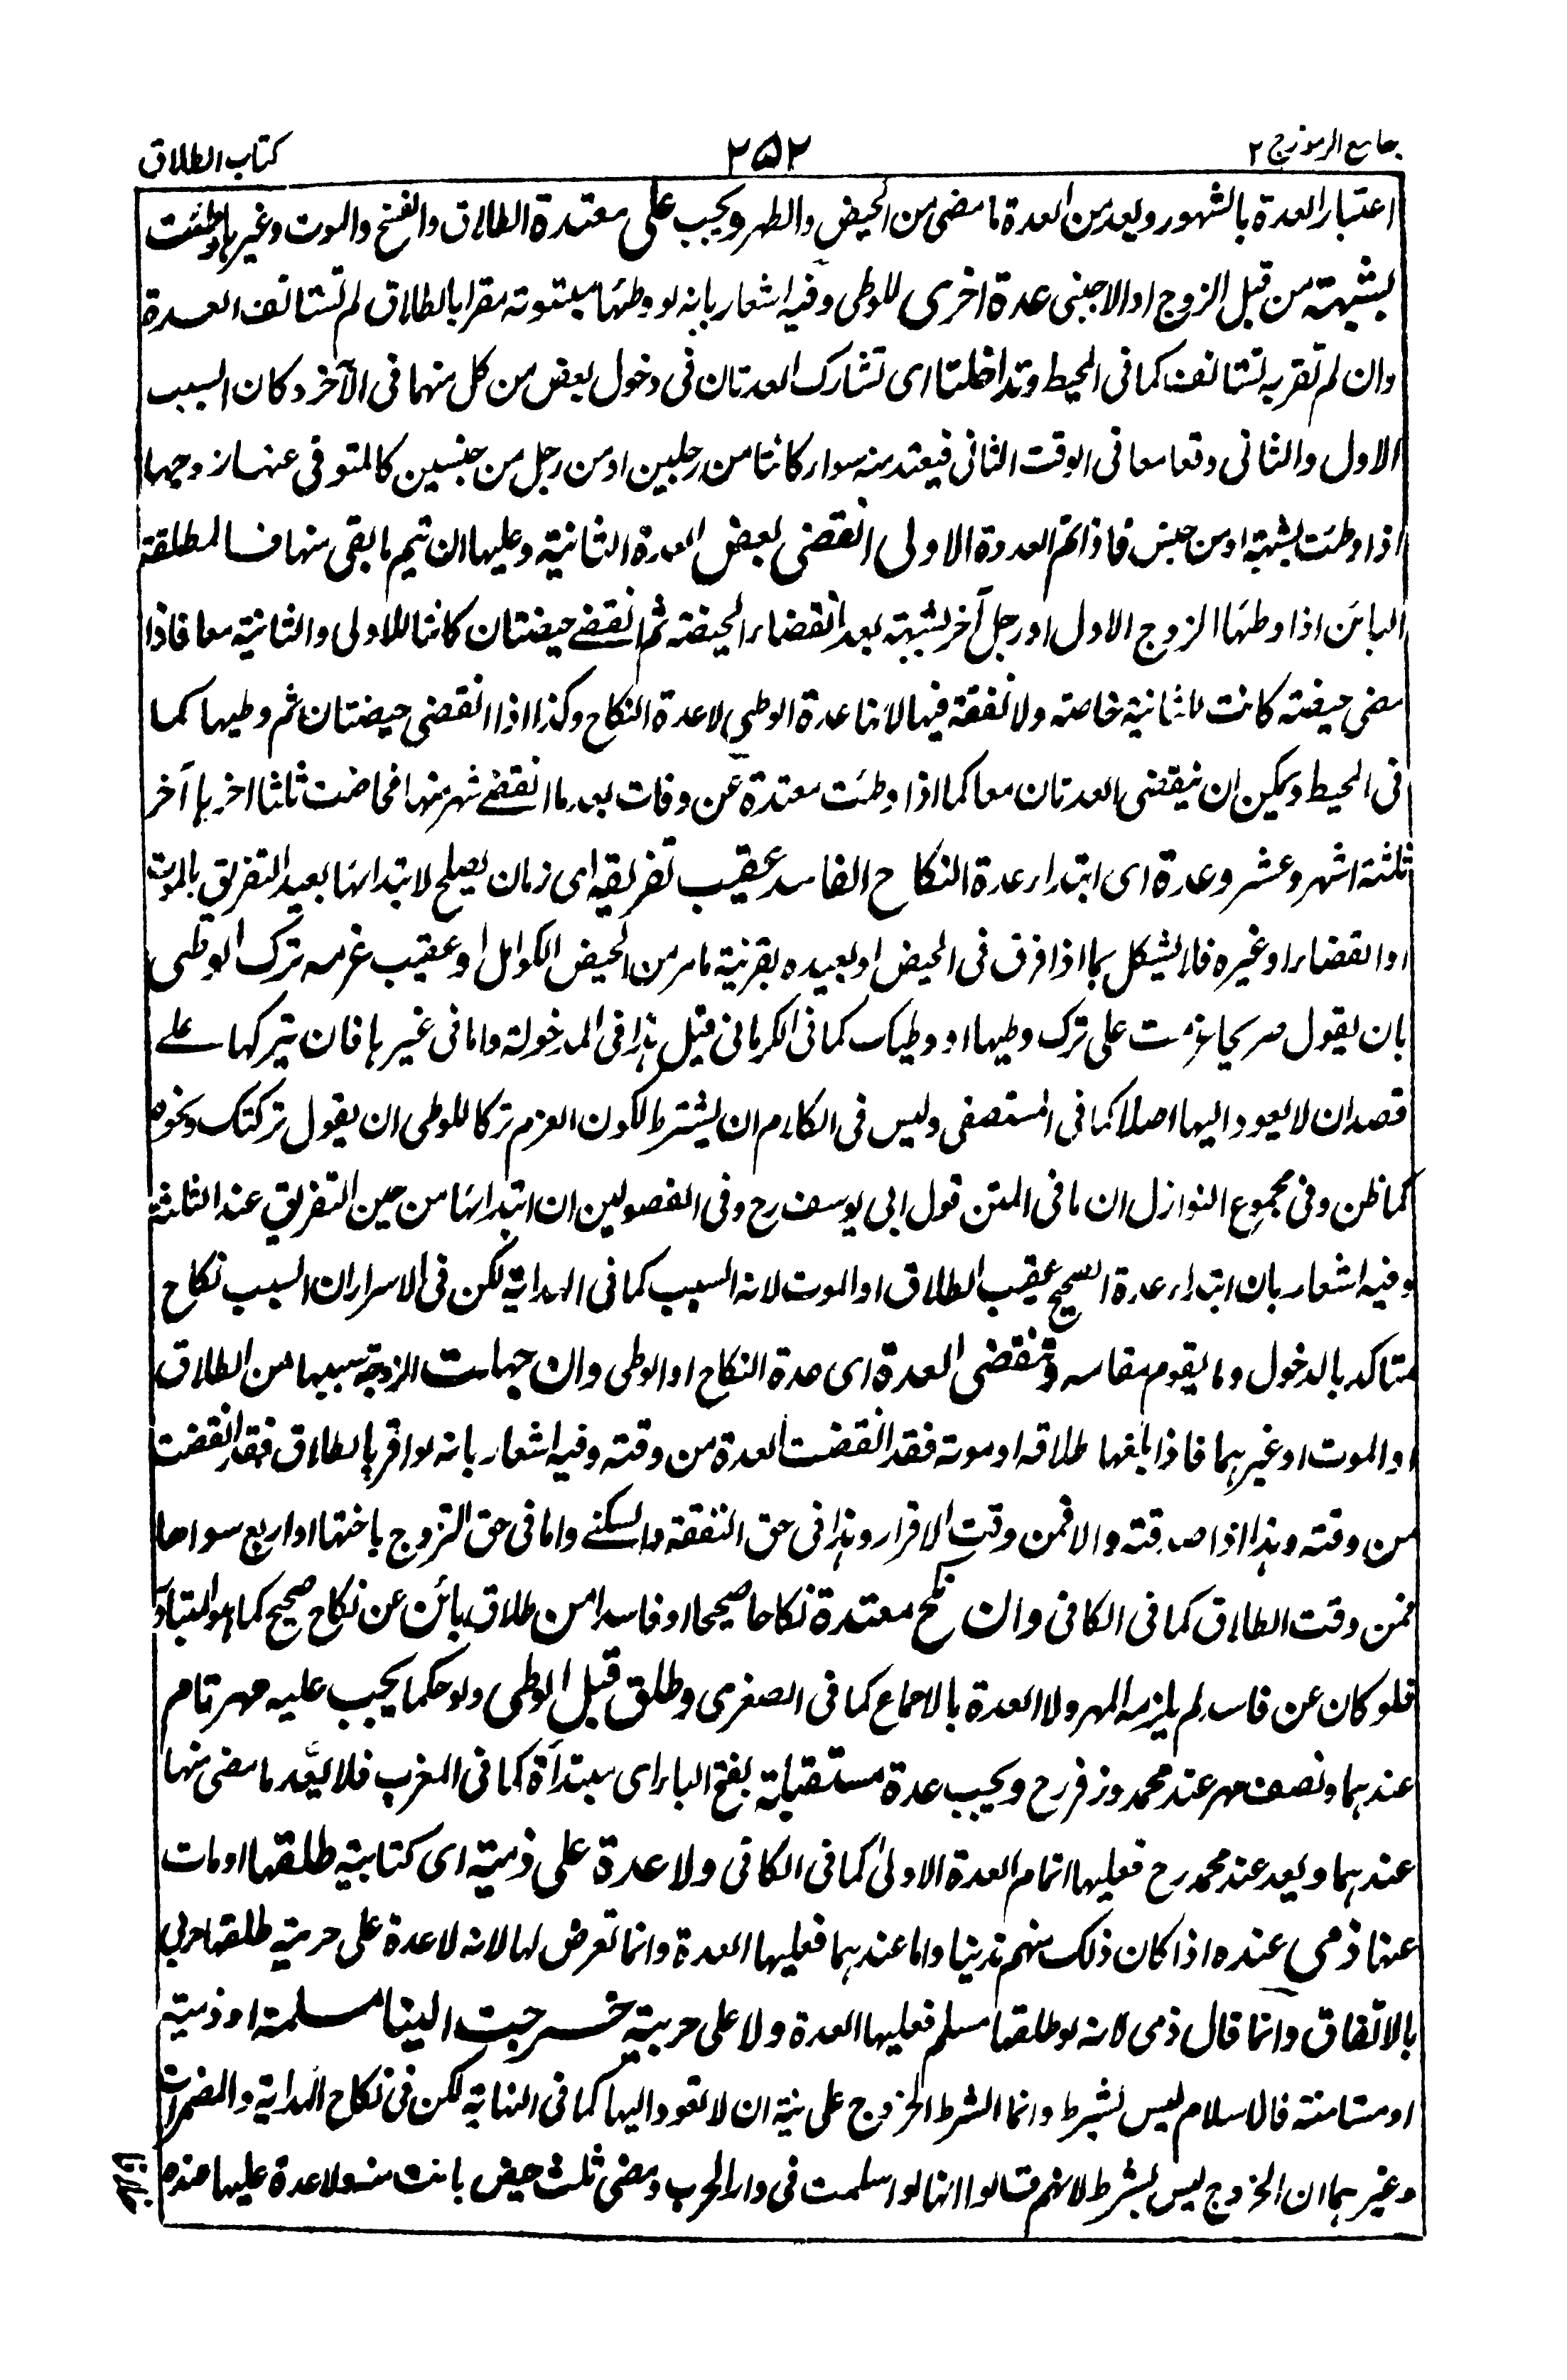 جامع الرموز ج ٢
٢٥٢
كتاب الطلاق
اعتبار العدة بالشهور ويعد من العدة ما مضى من الحيض والطهر ويجب على معتدة الطلاق والفسخ والموت وغيرها وطئت
بشبهة من قبل الزوج او الاجنبى عدة اخرى للوطى وفيه اشعار بانه لو وطئها مبتوتة مقرا بالطلاق لم تستانف العدة
وان لم تقر به تستانف كما فى المحيط وتداخلتا اى تشارك العدتان فى دخول بعض من كل منهما فى الآخر وكان السبب
الاول والثانى وقعا معا فى الوقت الثانى فيعتد منه سواء كانتا من رجلين او من رجل من جنسين كالمتوفى عنها زوجها
اذا وطئت بشبهة او من جنس فاذا تم العدة الاولى انقضى بعض العدة الثانية وعليها ان تيم ما بقى منها فالمطلقة
البائن اذا وطئها الزوج الاول او رجل آخر بشبهة بعد انقضاء الحيضة ثم انقضے حيضتان كانتا للاولى والثانية معا فاذا
مضى حيضة كانت للثانية خاصة ولا نفقة فيها لانها عدة الوطى لا عدة النكاح وكذا اذا انقضى حيضتان ثم وطيها كما
فى المحيط ويمكن ان ينقضى العدتان معا كما اذا وطئت معتدة عن وفات بعد ما انقضے شهر منها فحاضت ثلثا اخرها آخر
ثلثة اشهر وعشر وعدة اى ابتداء عدة النكاح الفاسد عقيب تفريقه اى زمان يصلح لابتدائها بعيد التفريق بالموت
او القضاء او غيره فلا يشكل بما اذا فرق فى الحيض او بعيده بقرنية ما مر من الحيض الكوامل او عقيب عزمه ترك الوطى
بان يقول صريحا عزمت على ترك وطيها او وطيك كما فى الكرمانى قيل هذا فى المدخولة واما فى غيرها فان يتركها علے
قصد ان لا يعود اليها اصلا كما فى المستصفى وليس فى الكلام ان يشترط لكون العزم تركا للوطى ان يقول تركتك ونحوه
كما ظن وفى مجموع النوازل ان ما فى المتن قول ابى يوسف رح وفى الفصولين ان ابتدائها من حين التفريق عند الثلثة
وفيه اشعار بان ابتداء عدة الصحيح عقيب الطلاق او الموت لانه السبب كما فى الهداية لكن فى الاسرار ان السبب نكاح
متاكد بالدخول وما يقوم مقامه وتنقضى العدة اى عدة النكاح او الوطى وان جهلت الزوجة سببها من الطلاق
او الموت او غيرهما فاذا بلغها طلاقه او موته فقد انقضت العدة من وقته وفيه اشعار بانه لو اقر بالطلاق فقد انقضت
من وقته وهذا اذا صدقته والا فمن وقت الاقرار وهذا فى حق النفقة والسكنے واما فى حق التزوج باختها او اربع سواها
فمن وقت الطلاق كما فى الكافى وان نكح معتدة نكاحا صحيحا او فاسدا من طلاق بائن عن نكاح صحيح كما هو المتبادر
فلو كان عن فاسد لم يلزمه المهر ولا العدة بالاجماع كما فى الصغرى وطلق قبل الوطى ولو حكما يجب عليه مهر تام
عندهما ونصف مهر عند محمد وزفر رح ويجب عدة مستقبلة بفتح الباء اى مبتدأة كما فى المغرب فلا يعد ما مضى منها
عندهما ويعد عند محمد رح فعليها اتمام العدة الاولىٰ كما فى الكافى ولا عدة على ذمية اى كتابية طلقها او مات
عنها ذمى عنده اذا كان ذلك منهم تدينا واما عندهما فعليها العدة وانما تعرض لها لانه لا عدة على حربية طلقها حربى
بالاتفاق وانما قال ذمى لانه لو طلقها مسلم فعليها العدة ولا على حربية خرجت الينا مسلمة او ذمية
او مستامنة فالاسلام ليس بشرط وانما الشرط الخروج على نية ان لا تعود اليها كما فى النهاية لكن فى نكاح الهداية والمضمرات
وغيرهما ان الخروج ليس بشرط لانهم قالوا انها لو اسلمت فى دار الحرب ومضى ثلث حيض بانت منه ولا عدة عليها عنده